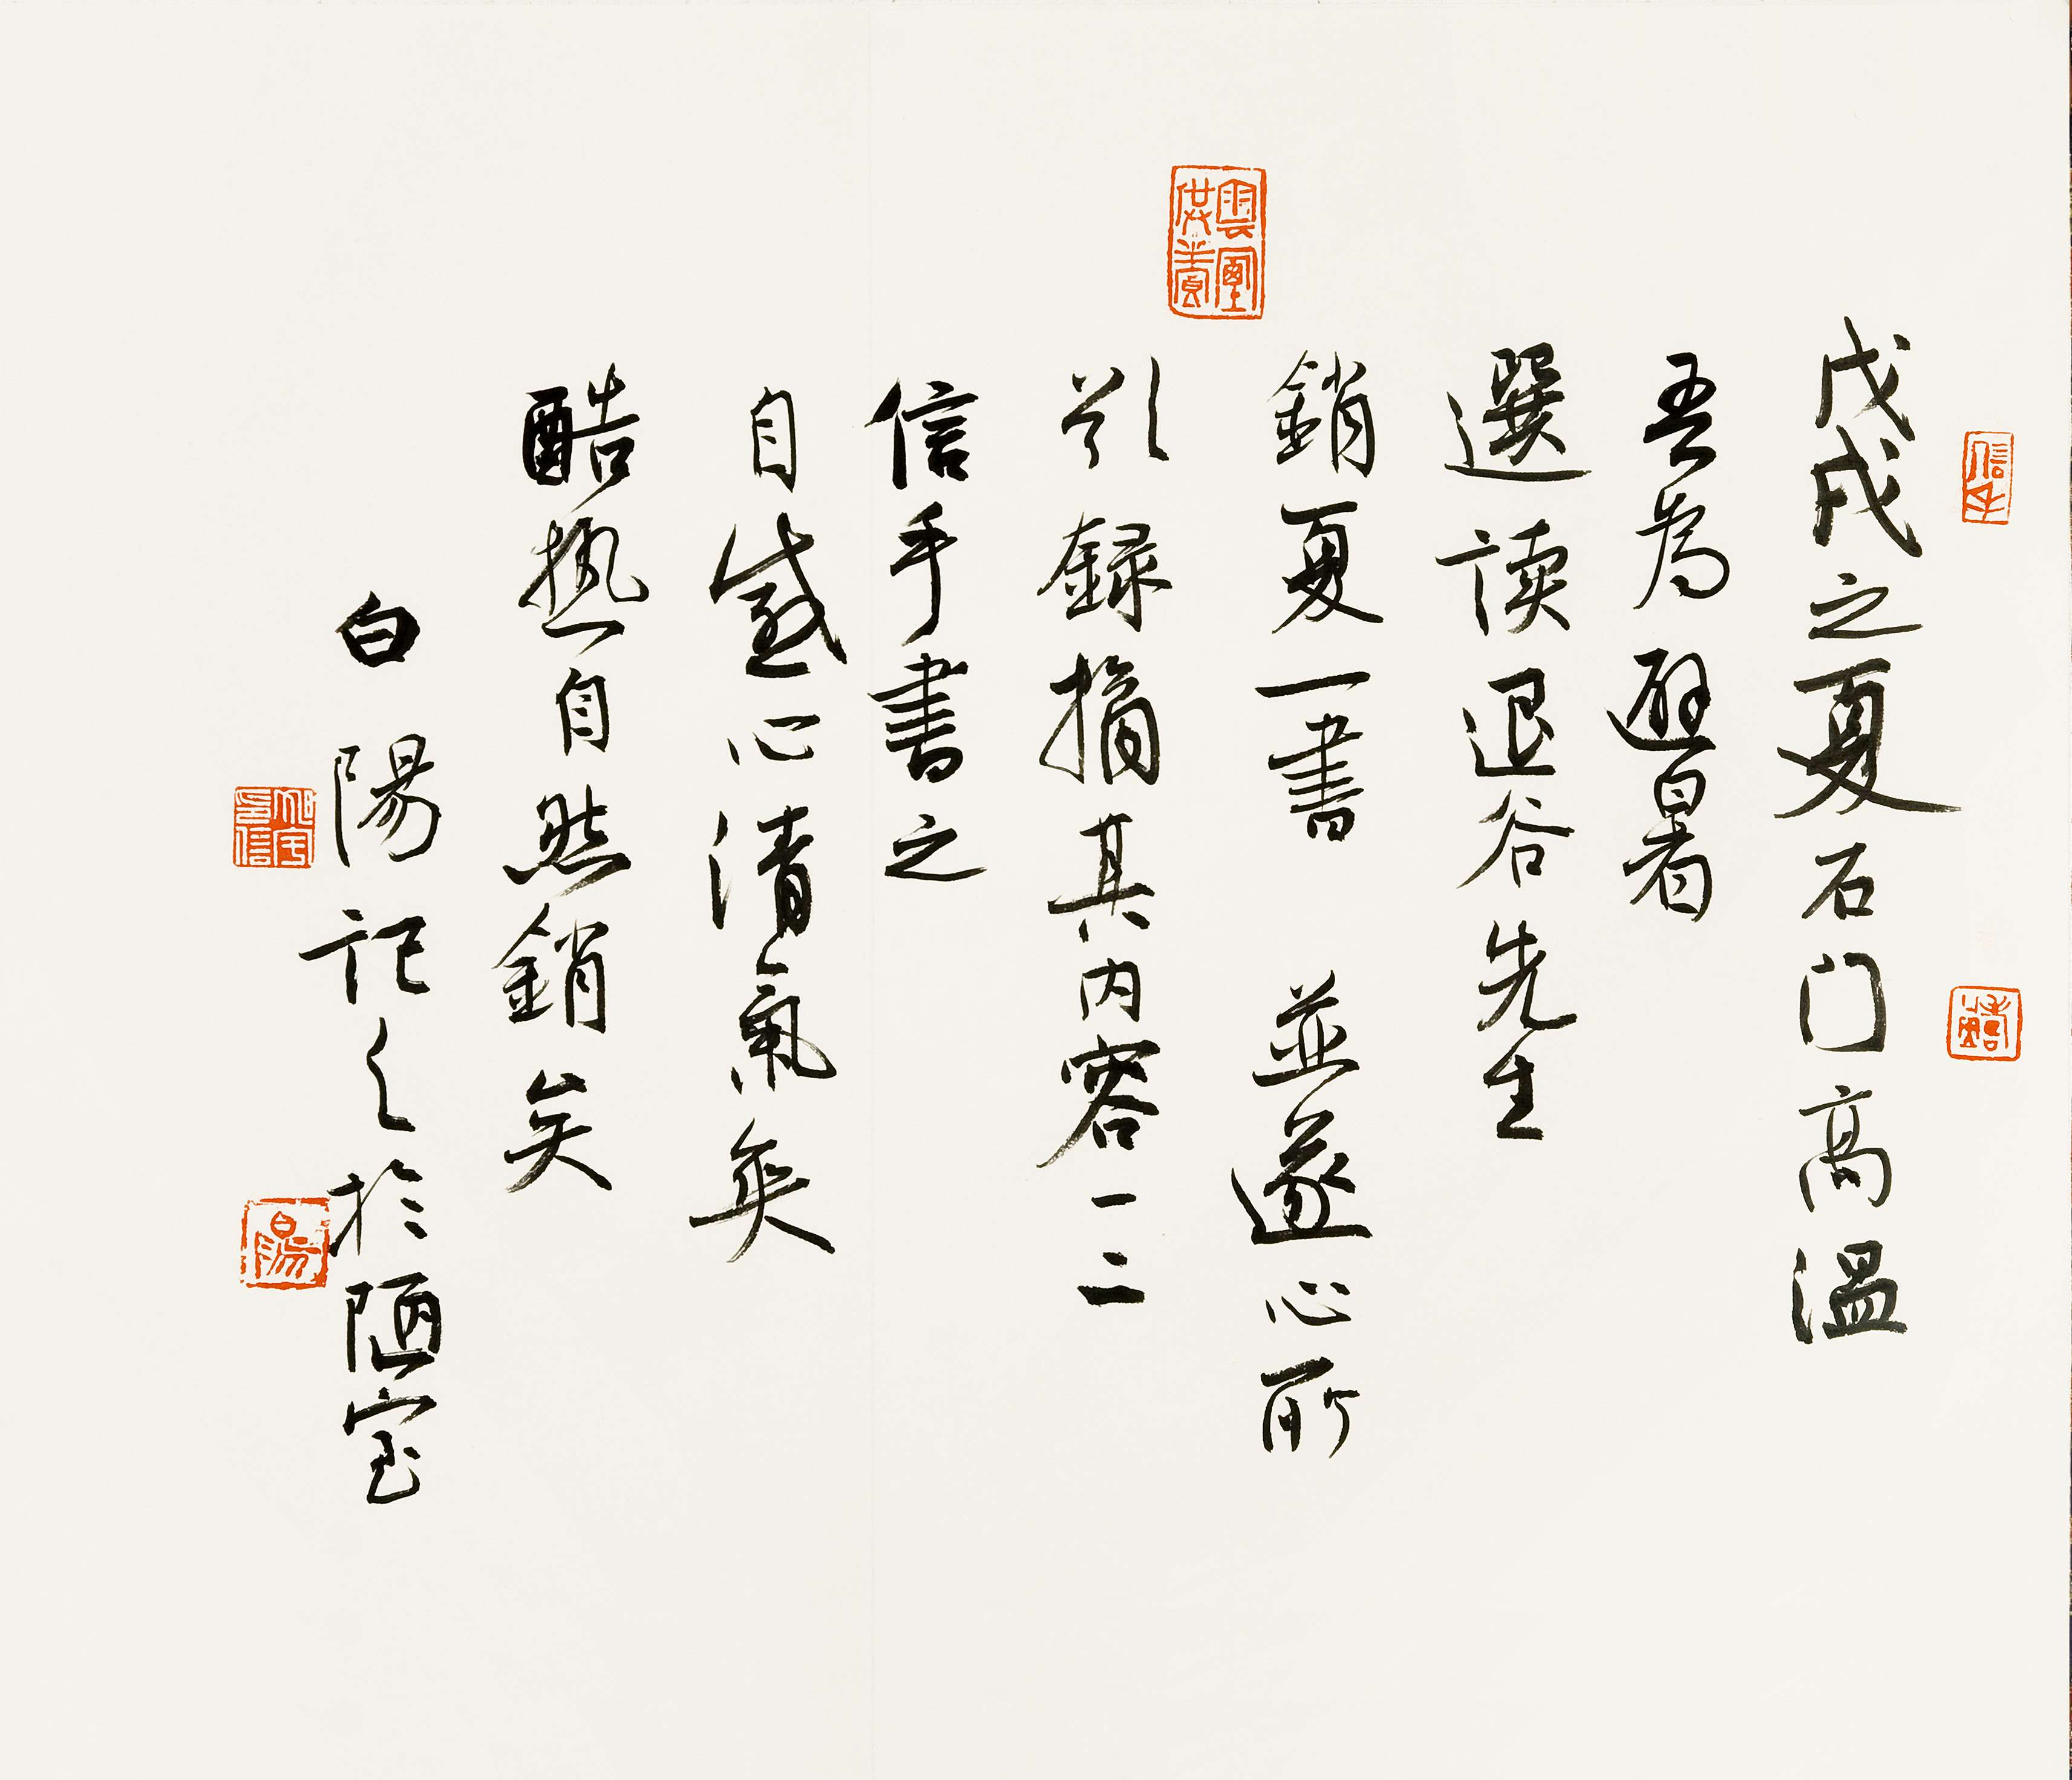 戊戌之夏石门高温
吾為避暑
選读退谷先生
銷夏一書 並遂心所
欲録摘其内容一二
信手書之
自感心清氣爽
酷热自然銷矣
白陽記之於陋室
信手
白陽